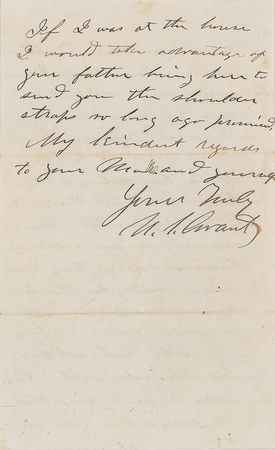 If I was at the house
I would take advantage of
your father being here to
send you the shoulder
straps so long ago promised.
My kindest regards
to your Mother and yourself
Yours Truly
U. S. Grant